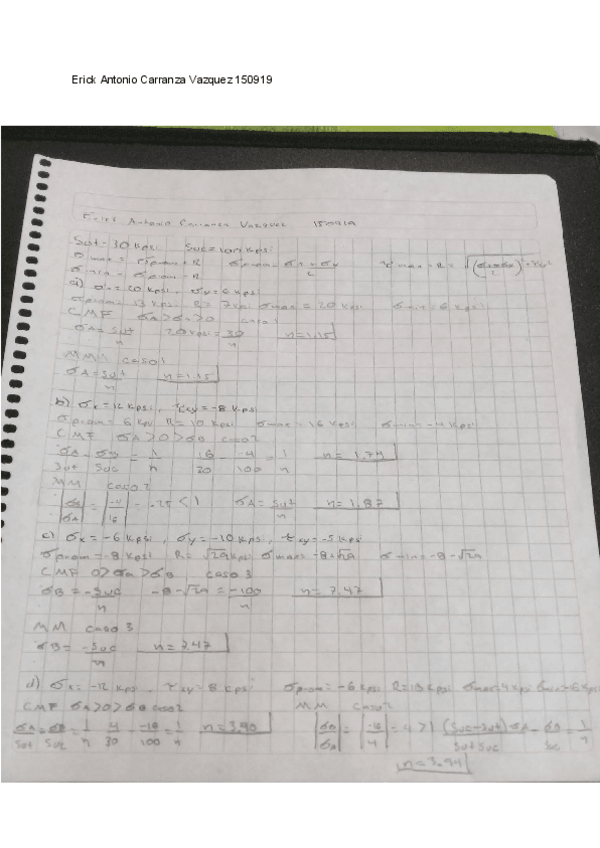 Erick Antonio Carranza Vazquez 150919
Erick Antonio Carranza Vazquez 150919
Sut = 30 Kpsi Suc = 100 Kpsi
σmax = σprom + R σprom = σx + σy / 2
σmin = σprom - R
a) σx = 20 Kpsi, σy = 6 Kpsi
σprom = 13 Kpsi R = 7 Kpsi σmax = 20 Kpsi σmin = 6 Kpsi
CMF caso 1
σA = Sut / n 20 Kpsi = 30 / n
MM caso 1
σA = Sut / n
b) σx = 12 Kpsi, τxy = -8 Kpsi
σprom = 6 Kpsi R = 10 Kpsi σmax = 16 Kpsi σmin = -4 Kpsi
CMF σA > 0 > σB caso 2
σA / Sut - σB / Suc = 1 / n 16 / 30 - -4 / 100 = 1 / n n = 1.74
MM caso 2
|σB / σA| = |-4 / 16| = .25 < 1 σA = Sut / n n = 1.87
c) σx = -6 Kpsi, σy = -10 Kpsi, τxy = -5 Kpsi
σprom = -8 Kpsi R = √29 Kpsi σmax = -8 + √29 σmin = -8 - √29
CMF 0 > σA > σB caso 3
σB = -Suc / n -8 - √29 = -100 / n n = 7.47
MM caso 3
σB = -Suc / n n = 7.47
d) σx = -12 Kpsi, τxy = 8 Kpsi σprom = -6 Kpsi
CMF σA > 0 > σB caso 2 MM caso 2
σA / Sut - σB / Suc = 1 / n 4 / 30 - -16 / 100 = 1 / n n = 3.40 |σB / σA| = |-16 / 4| = 4 > 1 (Suc - Sut) σA / Sut Suc - σB / Suc = 1 / n
n = 3.94